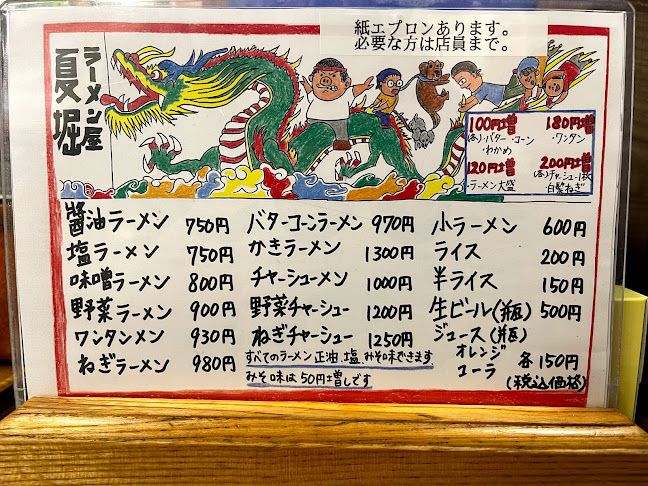 紙エプロンあります。
必要な方は店員まで。
ラーメン屋
夏堀
100円増
(各)・バター・コーン
・わかめ
180円増
・ワンタン
120円増
・ラーメン大盛
200円増
(各)チャーシュー1枚
・白髪ねぎ
醬油ラーメン 750円
塩ラーメン 750円
味噌ラーメン 800円
野菜ラーメン 900円
ワンタンメン 930円
ねぎラーメン 980円
バターコーンラーメン 970円
かきラーメン 1300円
チャーシューメン 1000円
野菜チャーシュー 1200円
ねぎチャーシュー 1250円
すべてのラーメン 正油、塩、みそ味できます
みそ味は50円増しです
小ラーメン 600円
ライス 200円
半ライス 150円
生ビール(瓶) 500円
ジュース(瓶)
オレンジ
コーラ 各150円
(税込価格)